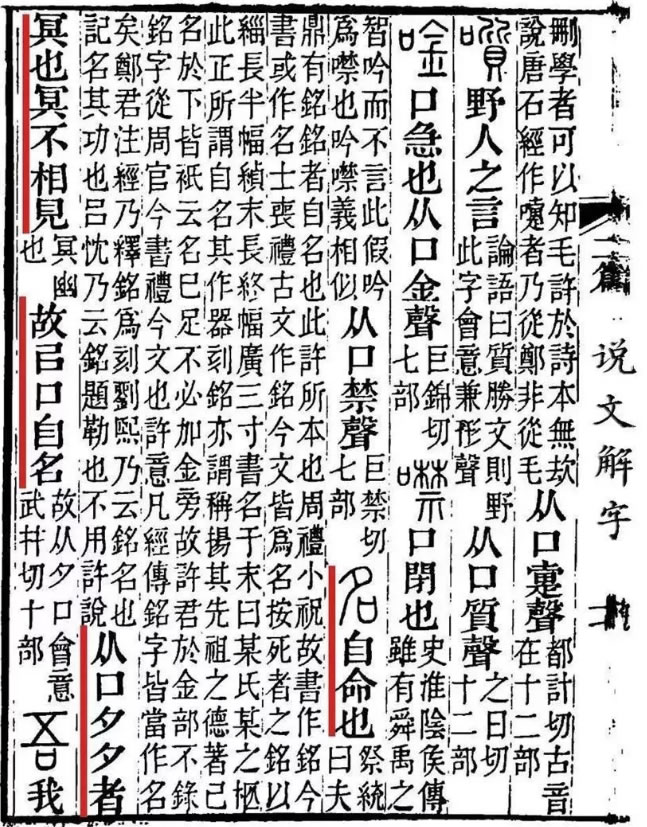 刪學者可以知毛許於詩本無㰦
說唐石經作嚏者乃從鄭非從毛
从口疐聲
都計切古音
在十二部
野人之言
論語曰質勝文則野
此字會意兼形聲
从口質聲
之日切
十二部
唫口急也从口金聲
巨錦切
七部
噤口閉也
史淮陰矦傳
雖有舜禹之
智吟而不言此假吟
爲噤也吟噤義相似
从口禁聲
巨禁切
七部
名自命也
祭統
曰夫
鼎有銘銘者自名也此許所本也周禮小祝故書作銘今
書或作名士喪禮古文作銘今文皆爲名按死者之銘以
緇長半幅末長終幅廣三寸書名于末曰某氏某之柩
此正所謂自名其作器刻銘亦謂稱揚其先祖之德著己
名於下皆祇云名已足不必加金旁故許君於金部不錄
銘字從周官今書禮今文也許意凡經傳銘字皆當作名
矣鄭君注經乃釋銘爲刻劉熙乃云銘名也
記名其功也呂忱乃云銘題勒也不用許說
从口夕夕者
冥也冥不相見
冥幽
也
故㠯口自名
故从夕口會意
武幷切十部
吾我
二篇
说文解字